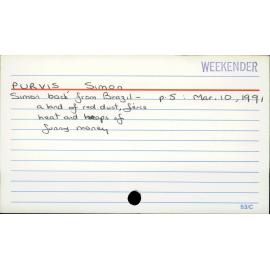 WEEKENDER
PURVIS, Simon
Simon back from Brazil - p.5 : Mar. 10, 1991
a land of red dust, fierce
heat and heaps of
funny money
53/C